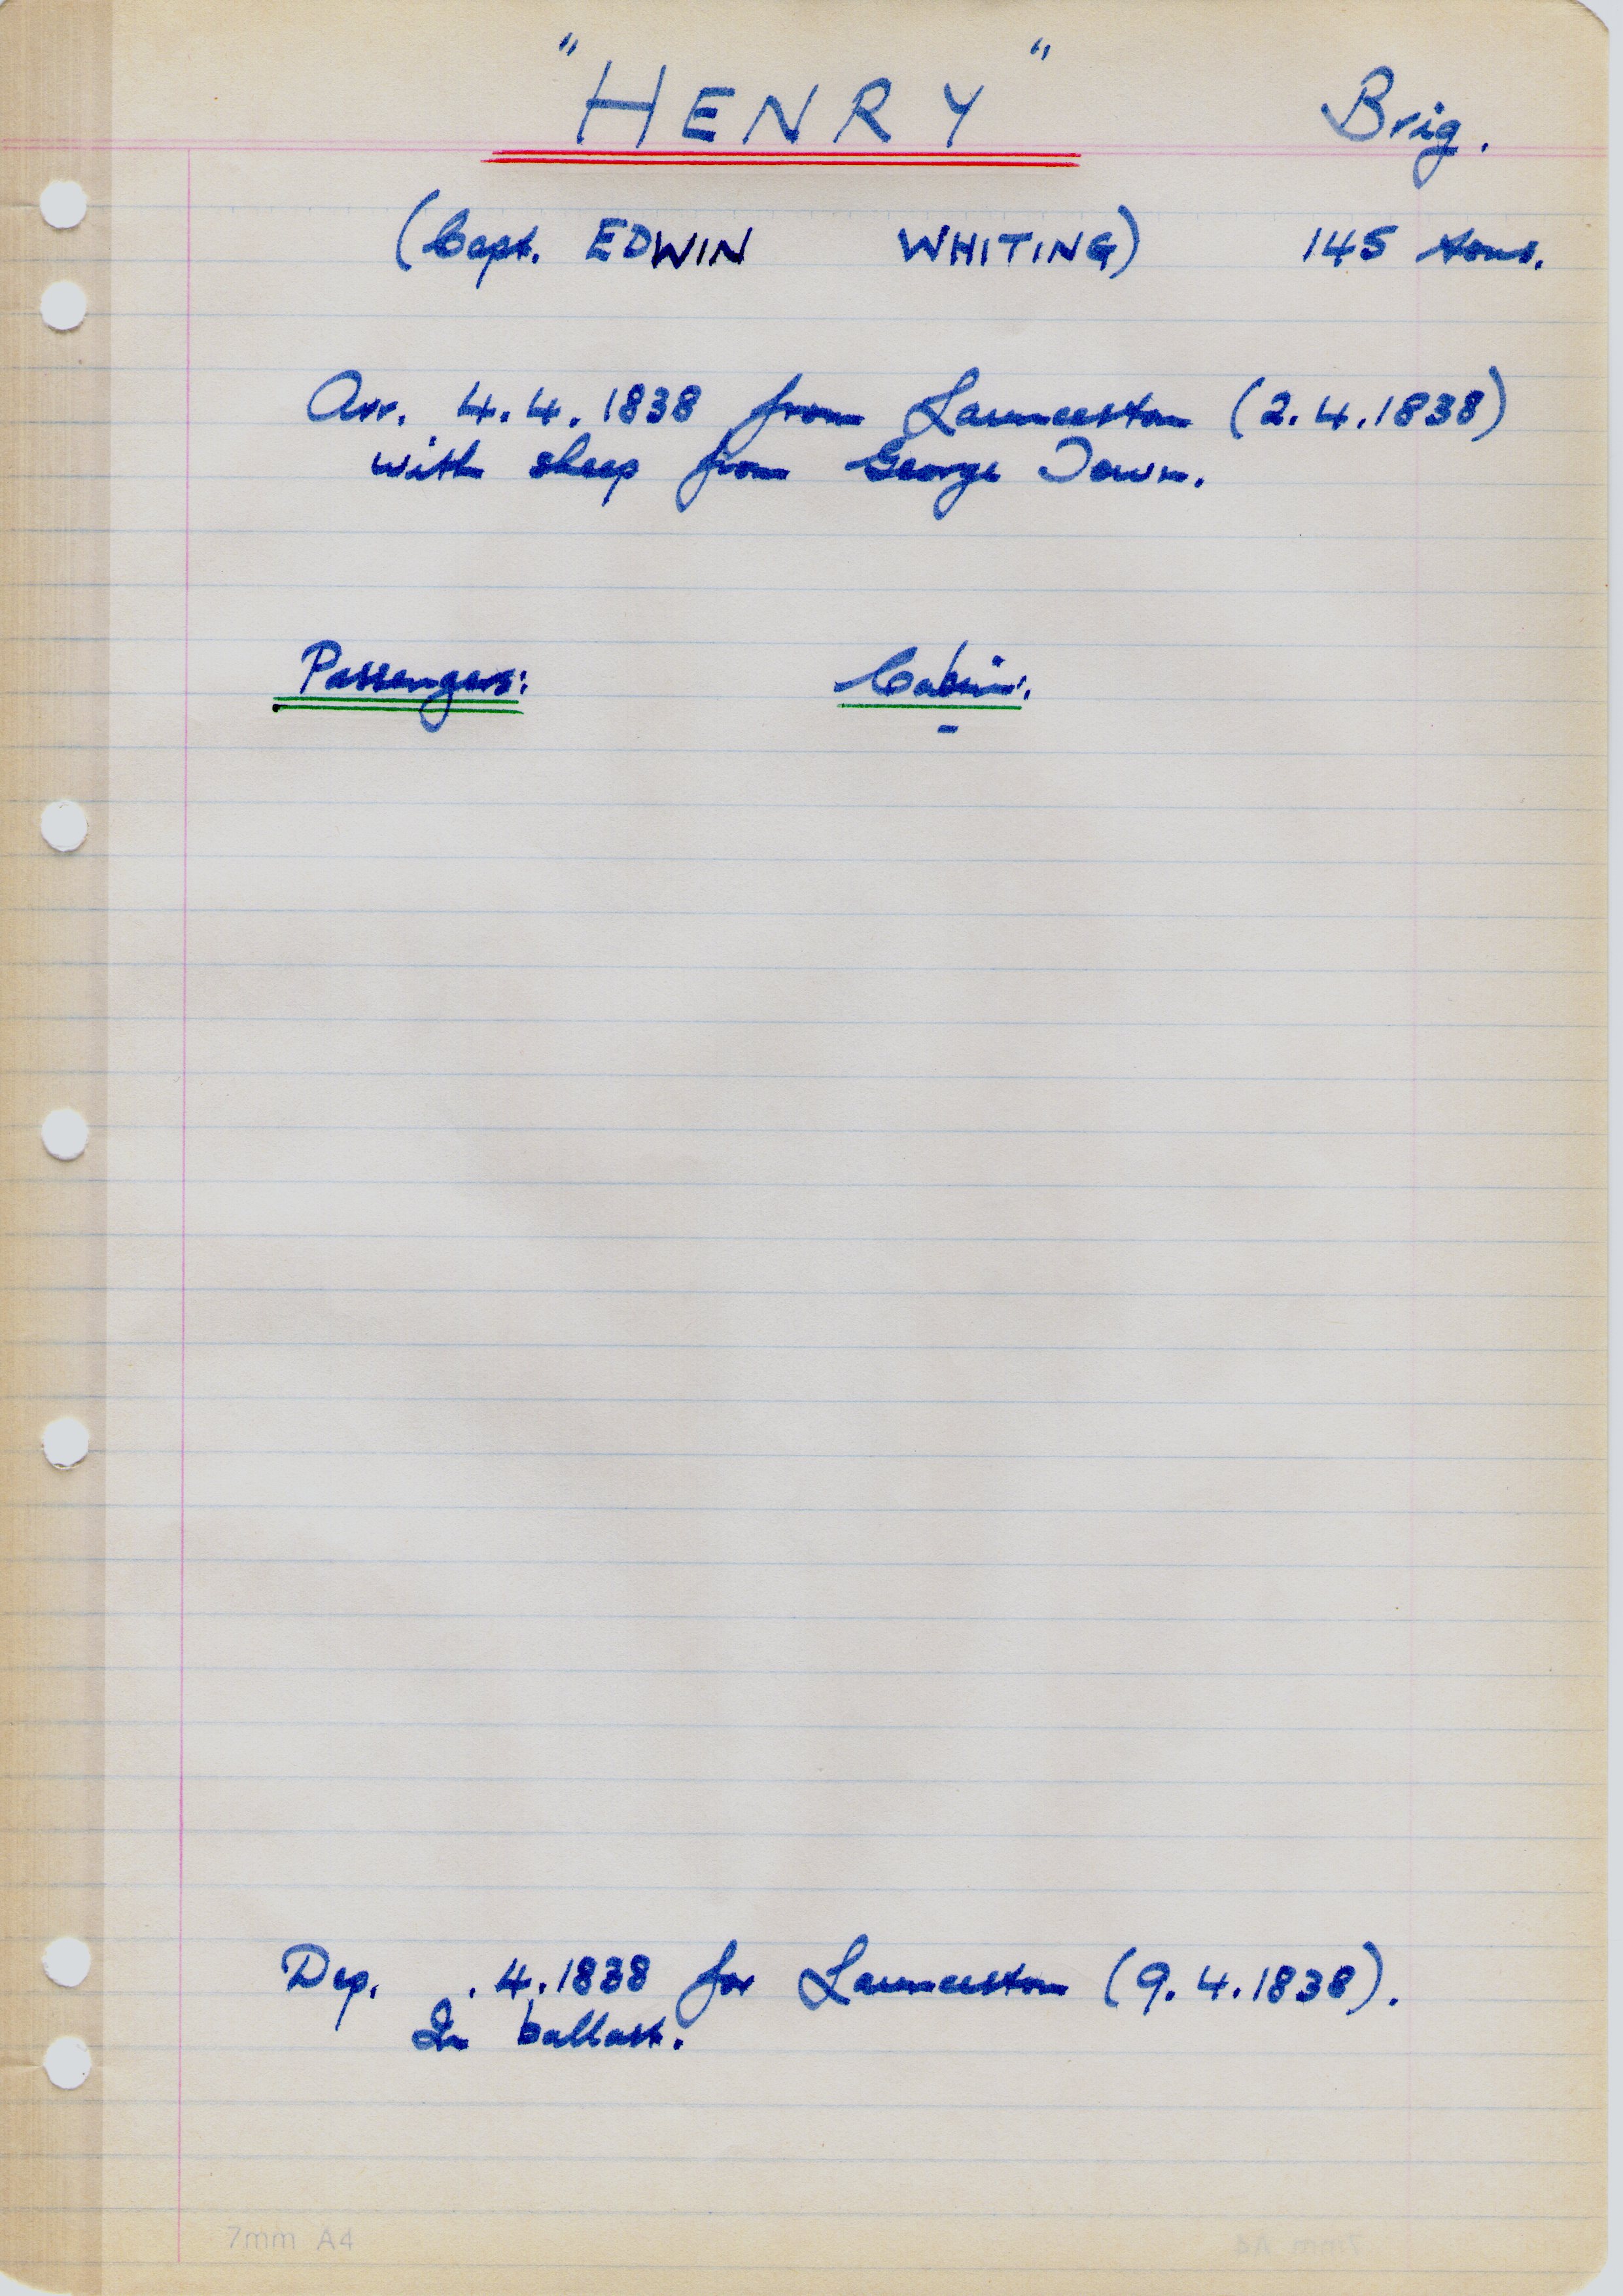 "HENRY" Brig.
(Capt. EDWIN WHITING) 145 tons.
Arr. 4.4.1838 from Launceston (2.4.1838)
with sheep from George Town.
Passengers: Cabin:
-
Dep. .4.1838 for Launceston (9.4.1838).
In ballast.
7mm A4